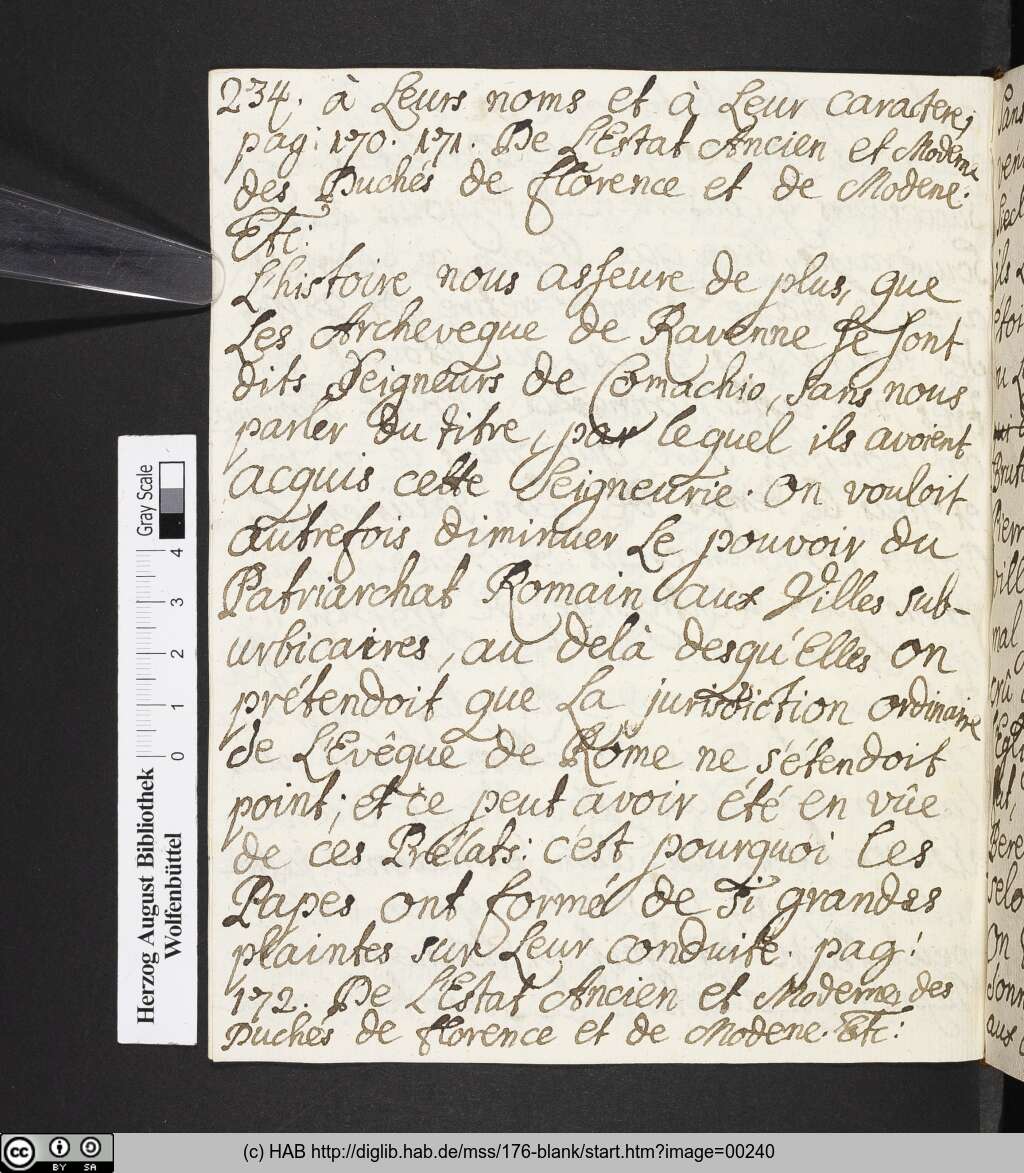 234. à Leurs noms et à Leur caractere;
pag: 170. 171. De L'Estat Ancien et Moderne
des Duchés de florence et de Modene.
Etc:
L'histoire nous asseure de plus, que
Les Archeveque de Ravenne se sont
dits Seigneurs de Comachio, sans nous
parler du titre, par lequel ils avoient
acquis cette Seigneurie. On vouloit
autrefois diminuer Le pouvoir du
Patriarchat Romain aux Villes sub-
urbicaires, au delà desqu'Elles on
prétendoit que La jurisdiction ordinaire
de L'Evêque de Rome ne s'étendoit
point; et ce peut avoir été en vûe
de ces Prélats: c'est pourquoi les
Papes ont formé de si grandes
plaintes sur Leur conduite. pag:
172. De L'Estat Ancien et Moderne des
Duchés de florence et de Modene. Etc:
Herzog August Bibliothek
Wolfenbüttel
0 1 2 3 4
Gray Scale
(c) HAB http://diglib.hab.de/mss/176-blank/start.htm?image=00240
cc BY SA